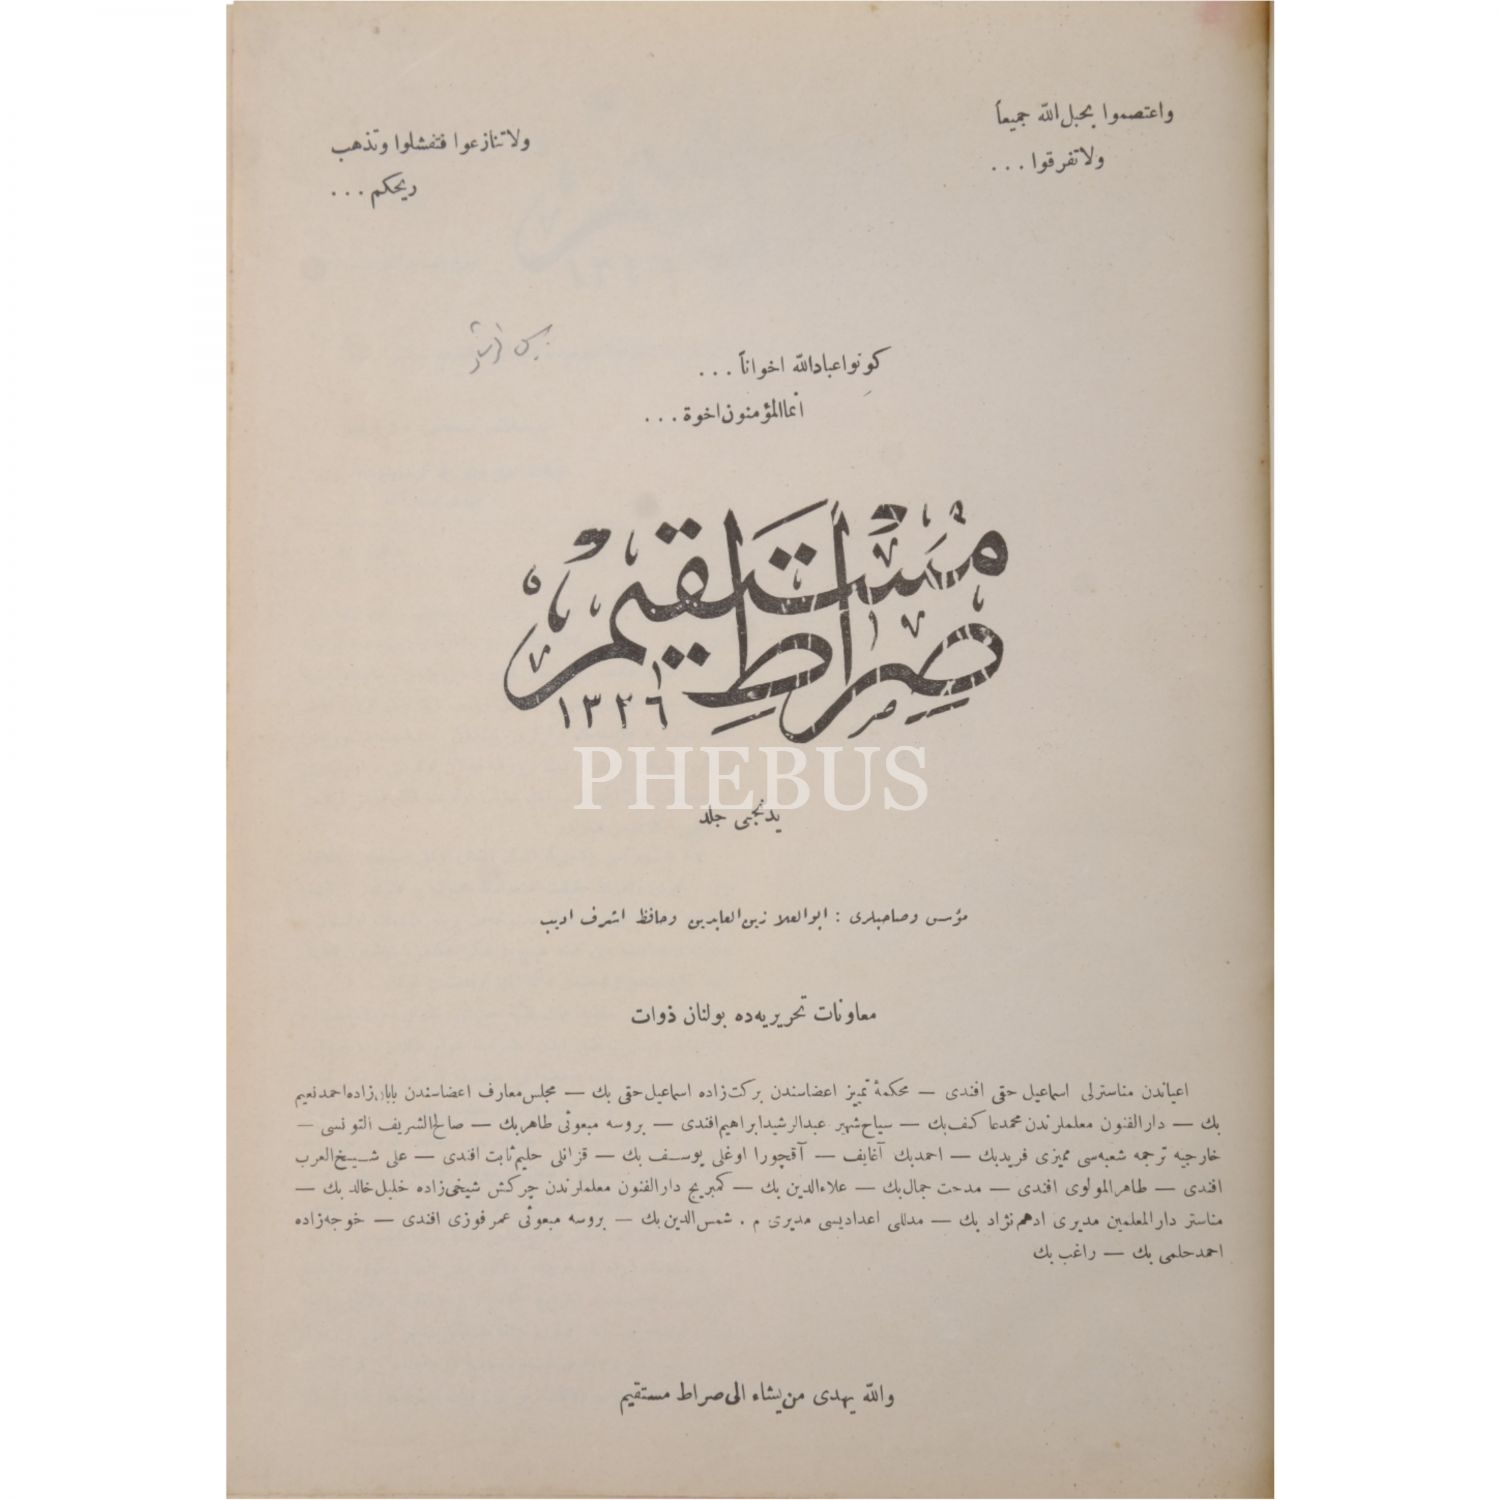 واعتصموا بحبل الله جميعاً
ولا تفرقوا . . .
ولا تنازعوا فتفشلوا وتذهب
ريحكم . . .
كونوا عبادالله اخواناً . . .
انما المؤمنون اخوة . . .
صراط مستقيم
١٣٢٦
PHEBUS
يدنجى جلد
مؤسس وصاحبلرى : ابوالعلا زين العابدين وحافظ اشرف اديب
معاونات تحريريه‌ده بولنان ذوات
اعياندن مناسترلى اسماعيل حقى افندى — محكمۀ تميز اعضاسندن بركت‌زاده اسماعيل حقى بك — مجلس معارف اعضاسندن بابان‌زاده احمد نعيم
بك — دارالفنون معلملرندن محمد عاكف بك — سياح شهير عبدالرشيد ابراهيم افندى — بروسه مبعوثى طاهر بك — صالح الشريف التونسى —
خارجيه ترجمه شعبه‌سى مميزى فريد بك — احمد بك آغايف — آقچورا اوغلى يوسف بك — قزانلى حليم ثابت افندى — على شيخ العرب
افندى — طاهر المولوى افندى — مدحت جمال بك — علاءالدين بك — كمبريج دارالفنون معلملرندن چركش شيخى‌زاده خليل خالد بك —
مناستر دارالمعلمين مديرى ادهم نژاد بك — مدللى اعداديسى مديرى م . شمس الدين بك — بروسه مبعوثى عمر فوزى افندى — خوجه‌زاده
احمد حلمى بك — راغب بك
والله يهدى من يشاء الى صراط مستقيم